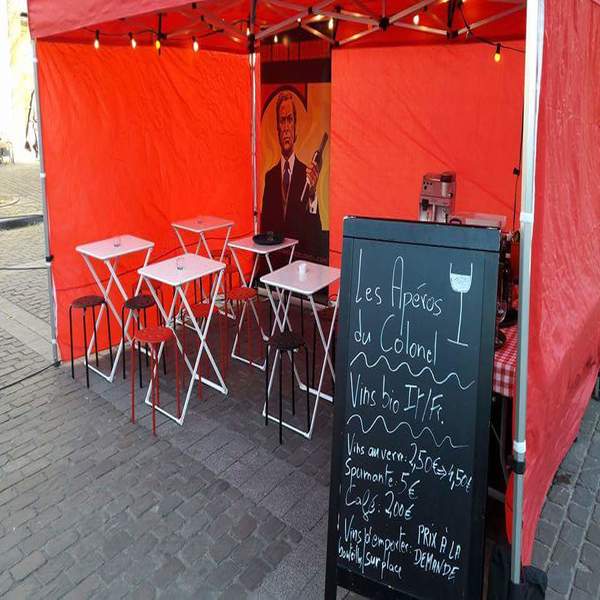 Les Apéros
du Colonel
Vins bio IT/Fr.
Vins au verre: 2,50€ → 4,50€
Spumante: 5€
Café: 2,00€
Vins à emporter: PRIX À LA
bouteille/sur place DEMANDE